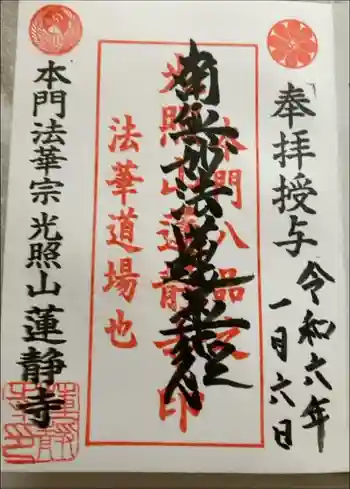 奉拝授与
令和六年
一月六日
本門八品之
南無妙法蓮華経
光照山蓮静寺印
法華道場也
本門法華宗 光照山 蓮静寺